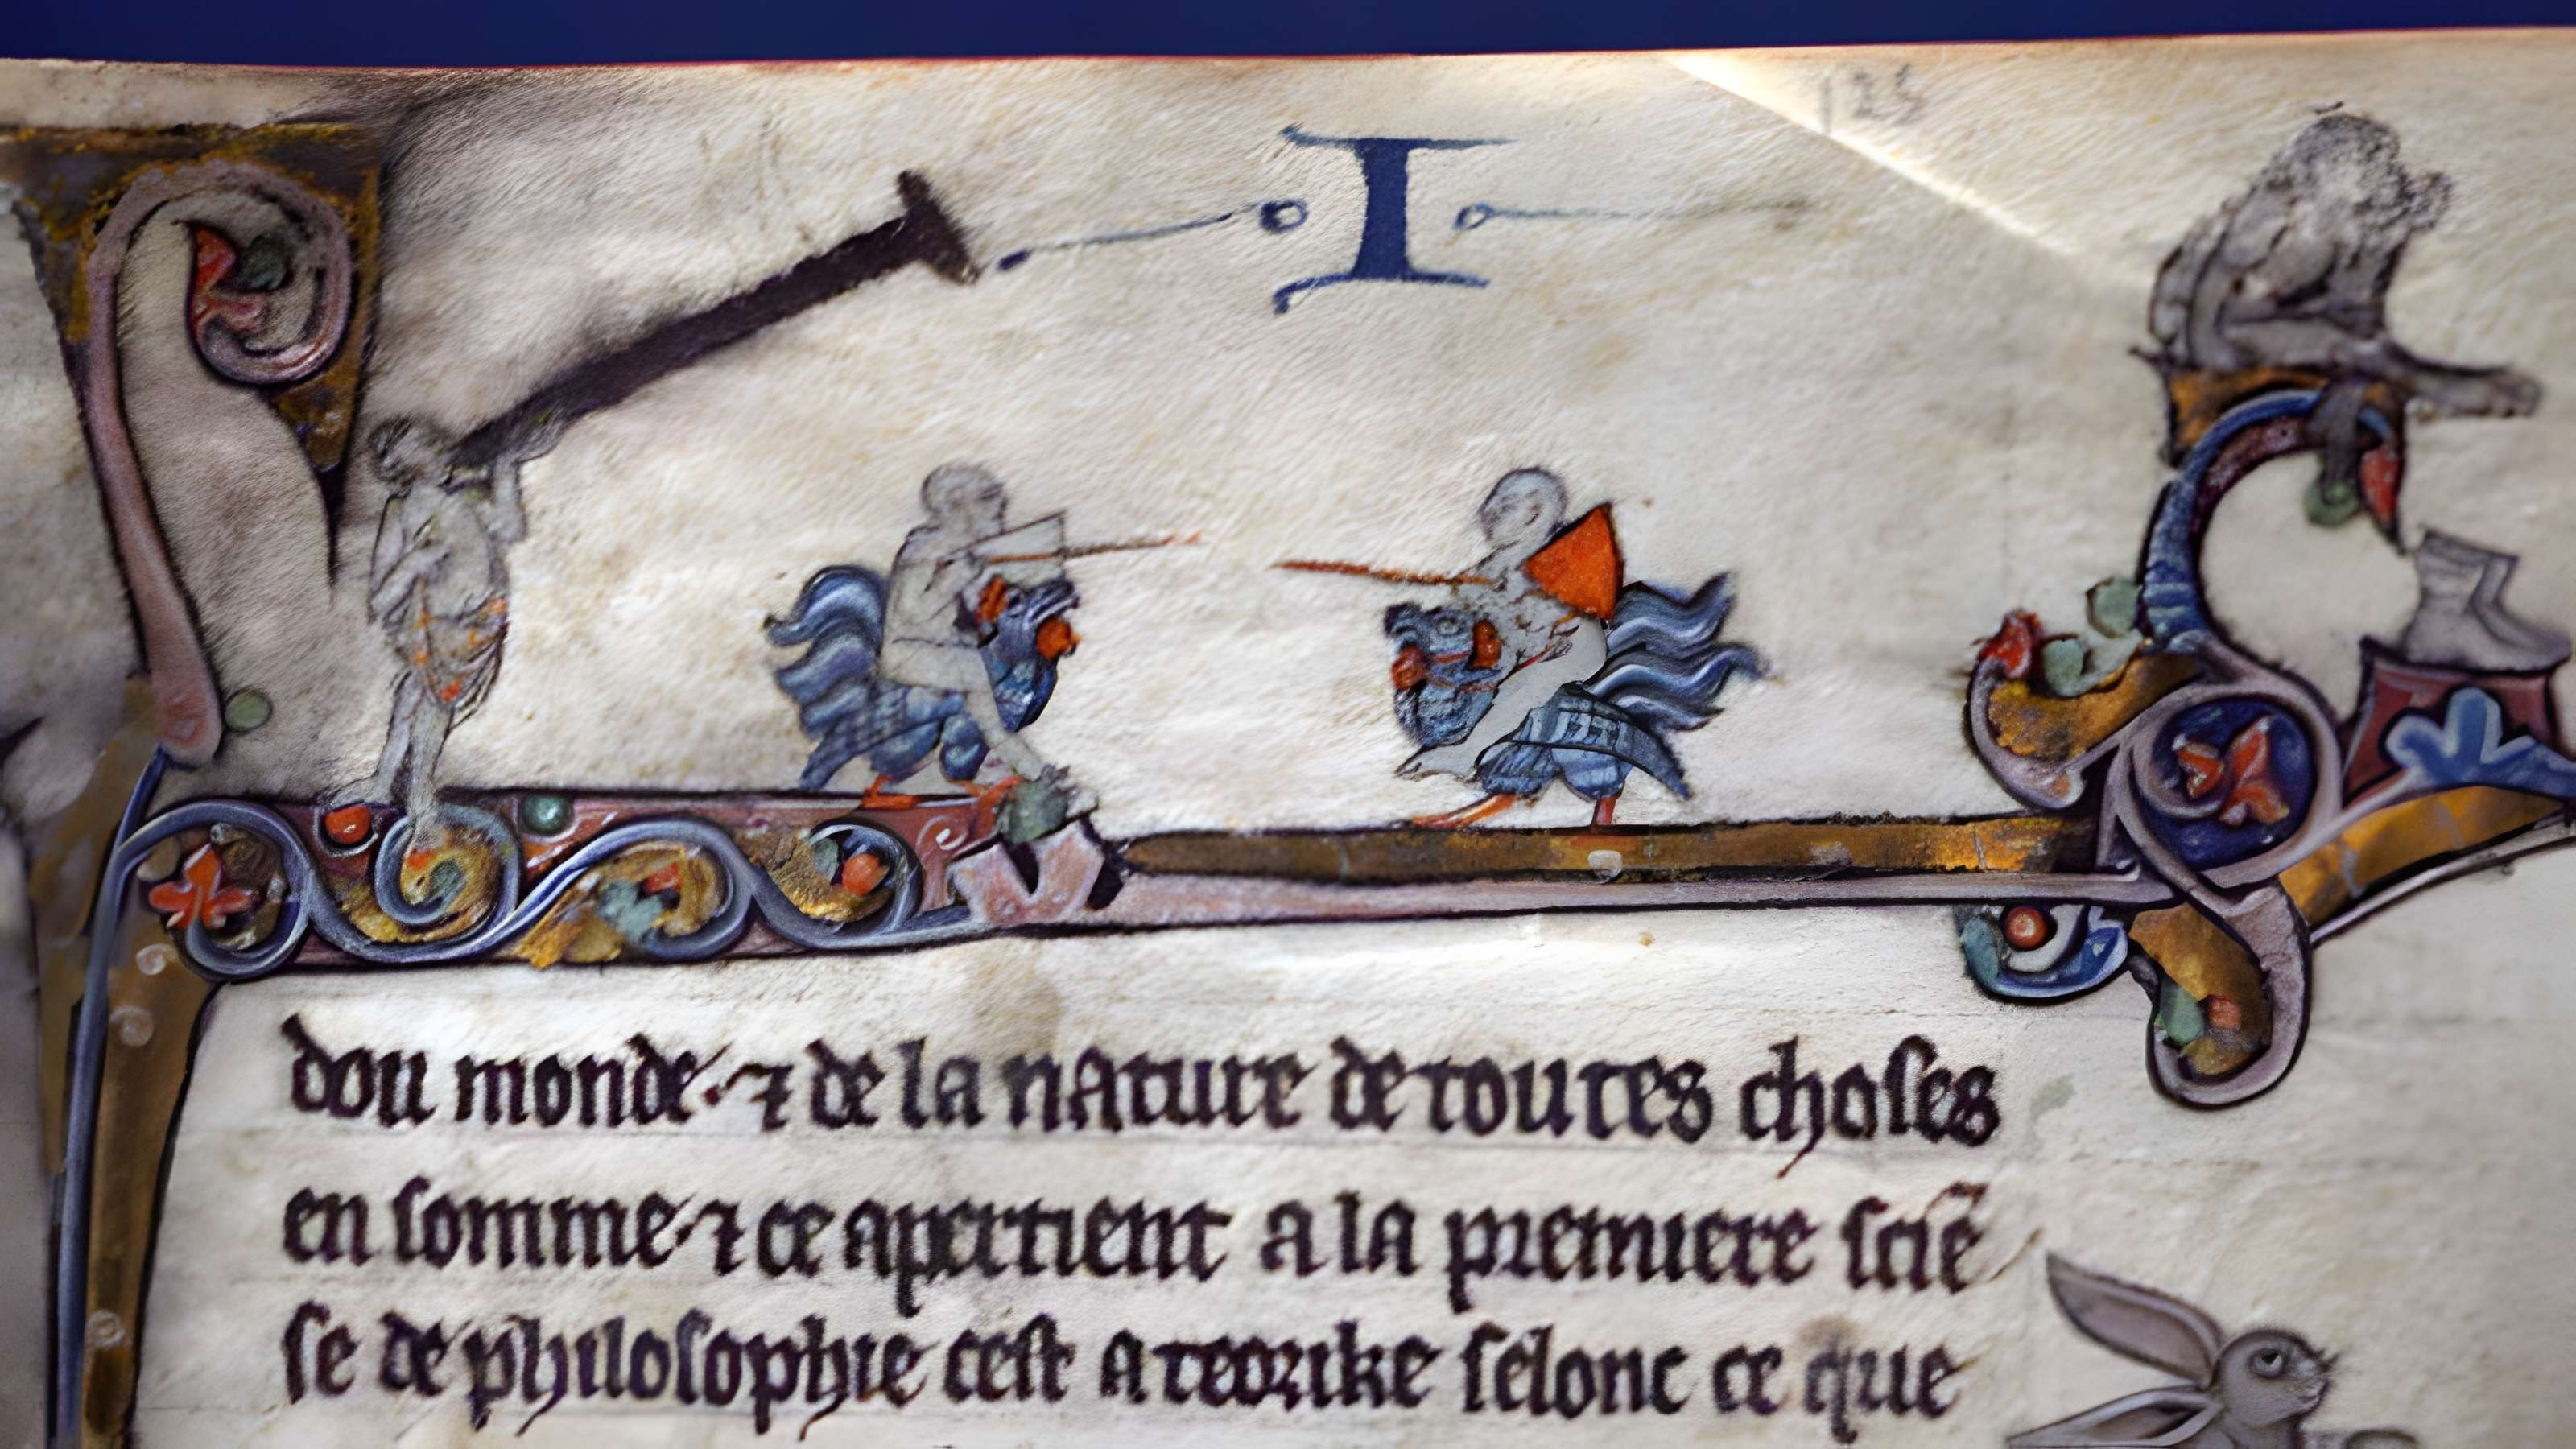 125
I
dou monde · ⁊ de la nature de toutes choſes
en ſomme ⁊ ce apertient a la premiere ſciē
ſe de philoſophie ceſt a teorike ſelonc ce que